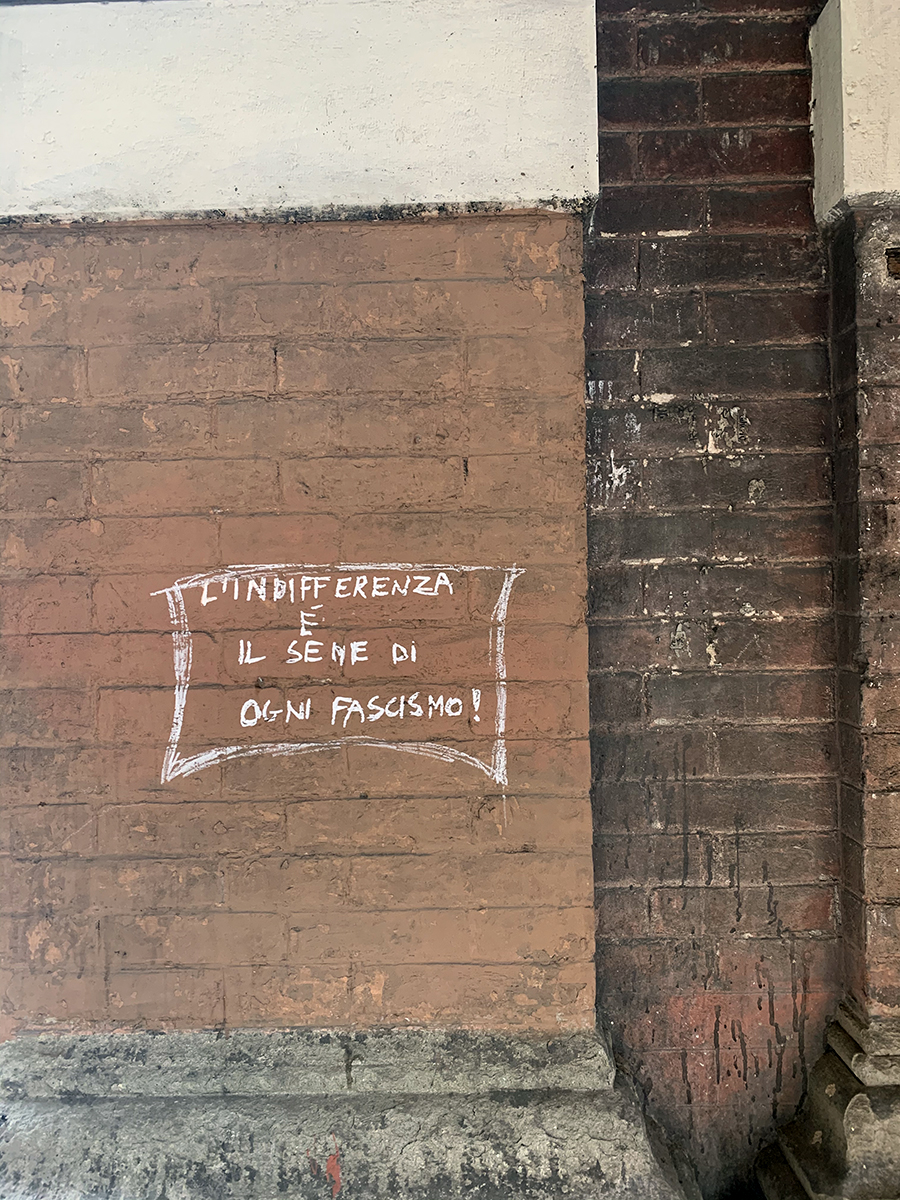 L'INDIFFERENZA
É
IL SEME DI
OGNI FASCISMO!